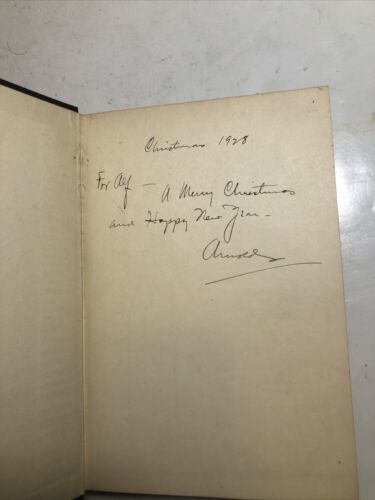 Christmas 1928
For Alf — A Merry Christmas
and Happy New Year —
Arnold